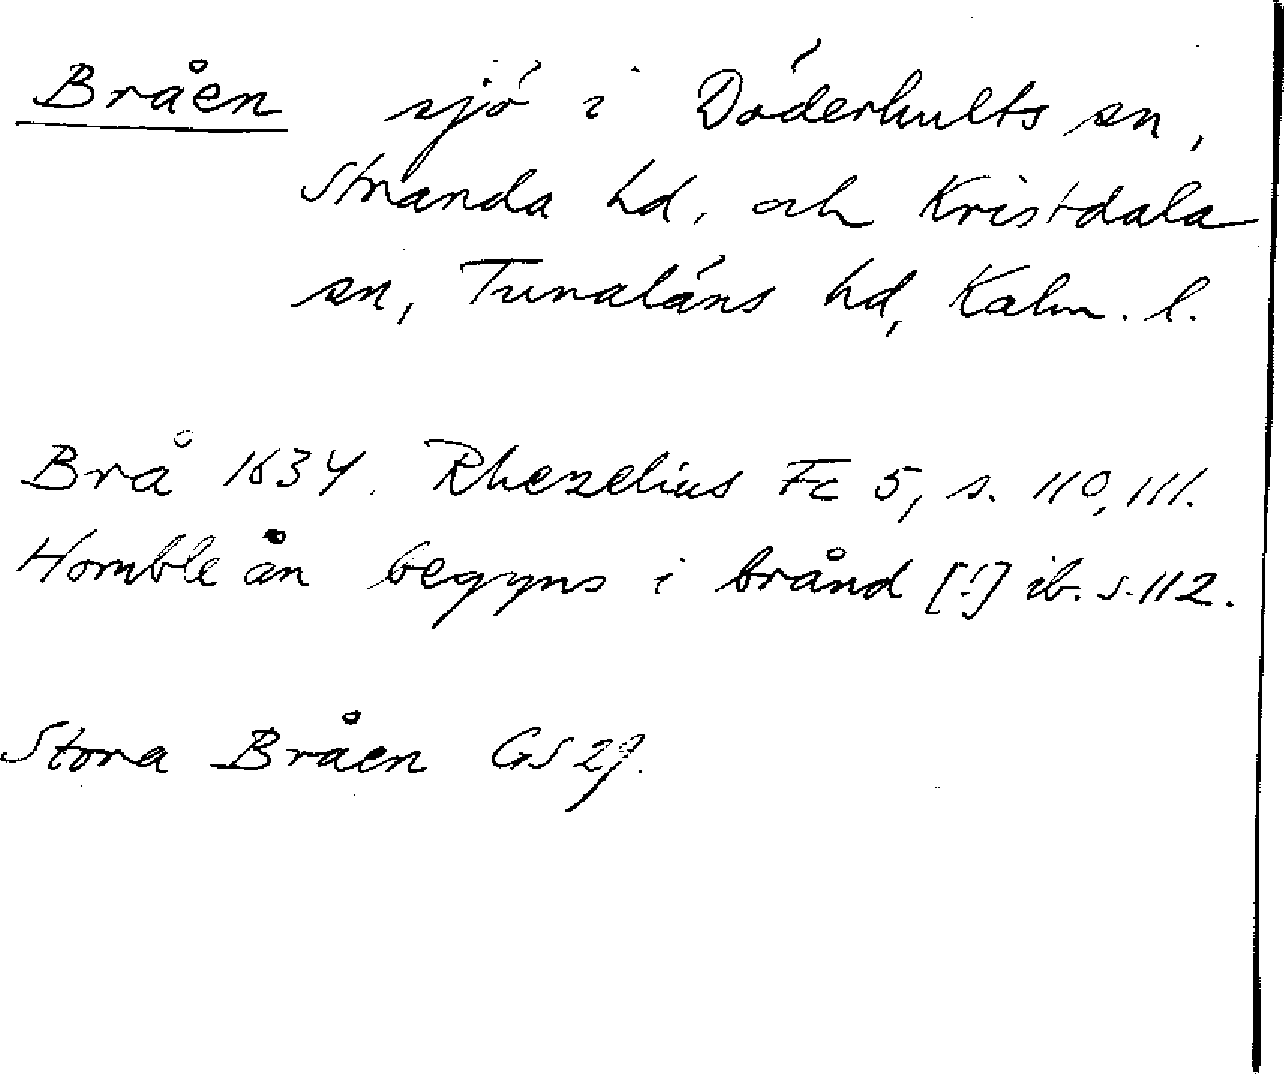 Bråen sjö i Döderhults sn,
Stranda hd. och Kristdala
sn, Tunaläns hd, Kalm. l.
Brå 1634. Rhezelius Fc 5, s. 110, 111.
Homble ån begyns i brånd [!] ib. s. 112.
Stora Bråen GS 29.